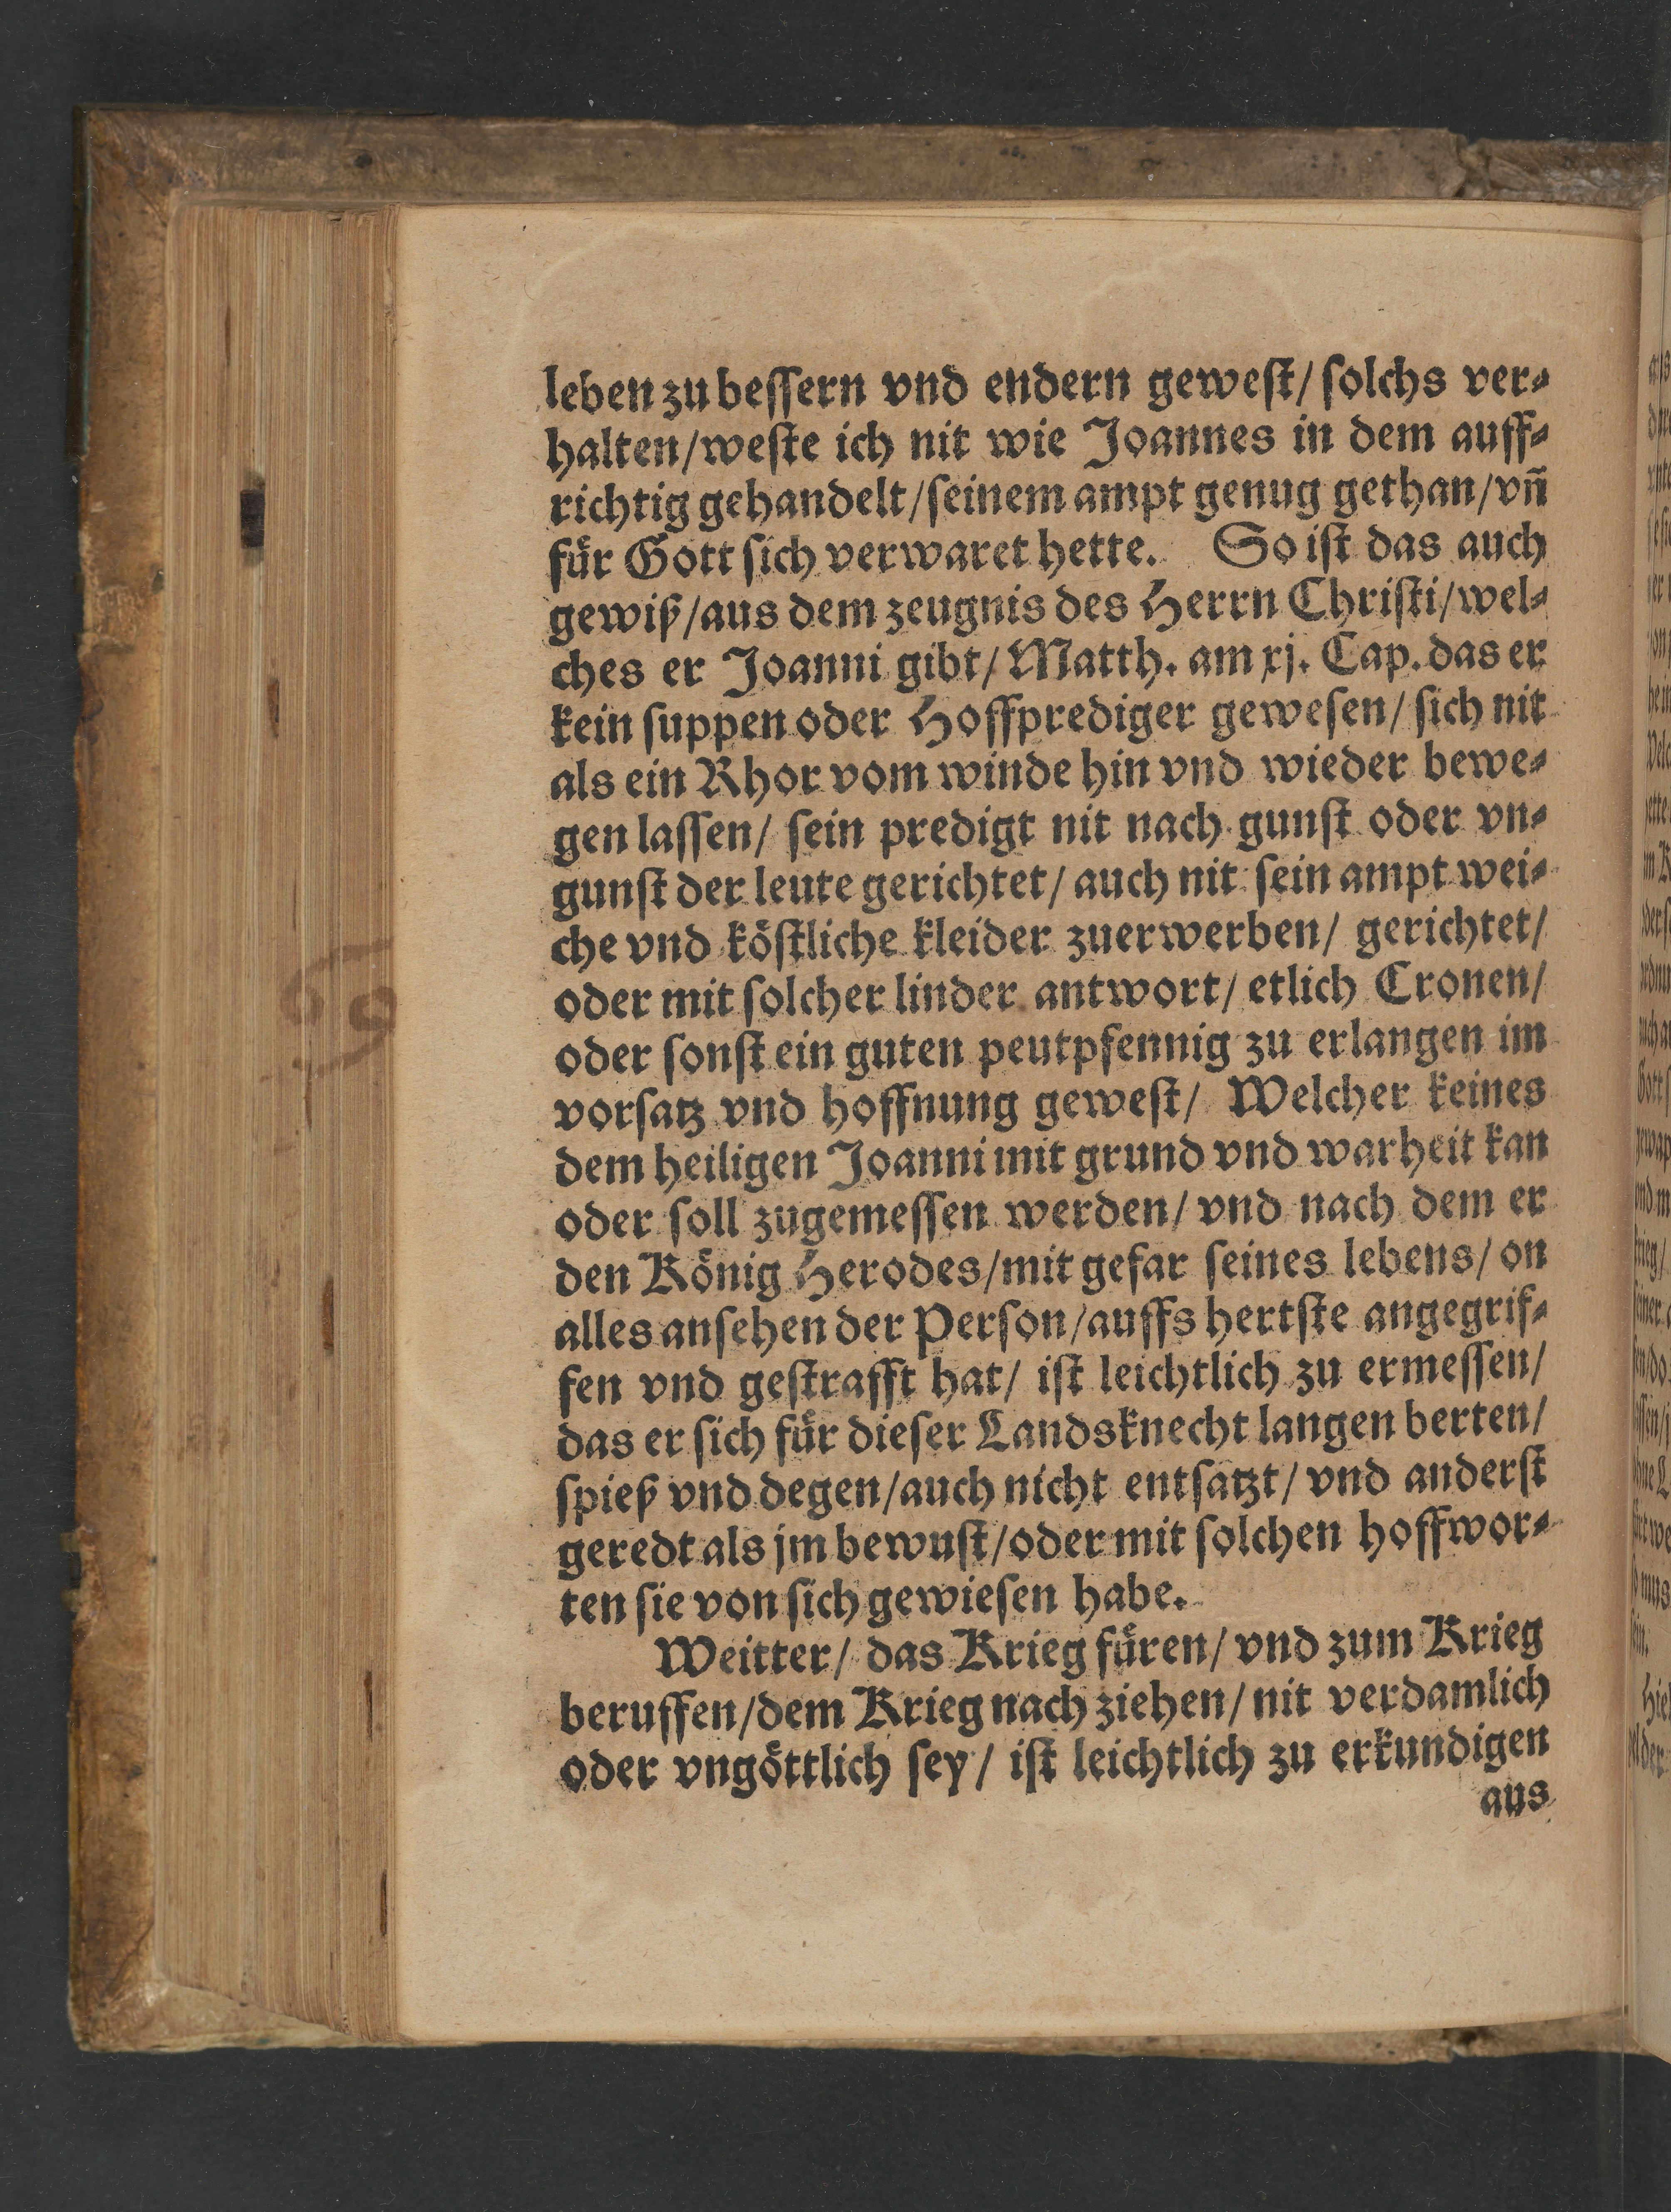 leben zu beſſern vnd endern geweſt/ ſolchs ver⸗
halten/weſte ich nit wie Joannes in dem auff⸗
richtig gehandelt/ſeinem ampt genug gethan/vñ
fuͤr Gott ſich verwaret hette. So iſt das auch
gewiß/aus dem zeugnis des Herrn Chriſti/wel⸗
ches er Joanni gibt/ Matth. am xj. Cap. das er
kein ſuppen oder Hoffprediger geweſen/ ſich nit
als ein Rhor vom winde hin vnd wieder bewe⸗
gen laſſen/ ſein predigt nit nach gunſt oder vn⸗
gunſt der leute gerichtet/ auch nit ſein ampt wei⸗
che vnd koͤſtliche kleider zuerwerben/ gerichtet/
oder mit ſolcher linder antwort/ etlich Cronen/
oder ſonſt ein guten peutpfennig zu erlangen im
vorſatz vnd hoffnung geweſt/ Welcher keines
dem heiligen Joanni mit grund vnd warheit kan
oder ſoll zugemeſſen werden/ vnd nach dem er
den Koͤnig Herodes/mit gefar ſeines lebens/ on
alles anſehen der Perſon/auffs hertſte angegrif⸗
fen vnd geſtrafft hat/ iſt leichtlich zu ermeſſen/
das er ſich fuͤr dieſer Landsknecht langen berten/
ſpieß vnd degen/auch nicht entſatzt/ vnd anderſt
geredt als jm bewuſt/oder mit ſolchen hoffwor⸗
ten ſie von ſich gewieſen habe.
Weitter/ das Krieg fuͤren/ vnd zum Krieg
beruffen/dem Krieg nach ziehen/ nit verdamlich
oder vngoͤttlich ſey/ iſt leichtlich zu erkundigen
aus